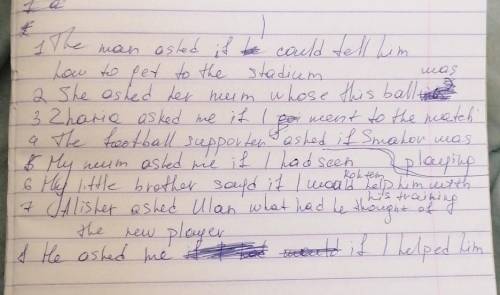 1 The man asked if could tell him
how to get to the stadium
2 She asked her mum whose this ball was
3 Zharia asked me if I went to the match
4 The football supporter asked if Smakov was playing
5 My mum asked me if I had seen
6 My little brother said if I would help him with his training
7 Alisher asked Ulan what had he thought of
the new player
8 He asked me if I helped him